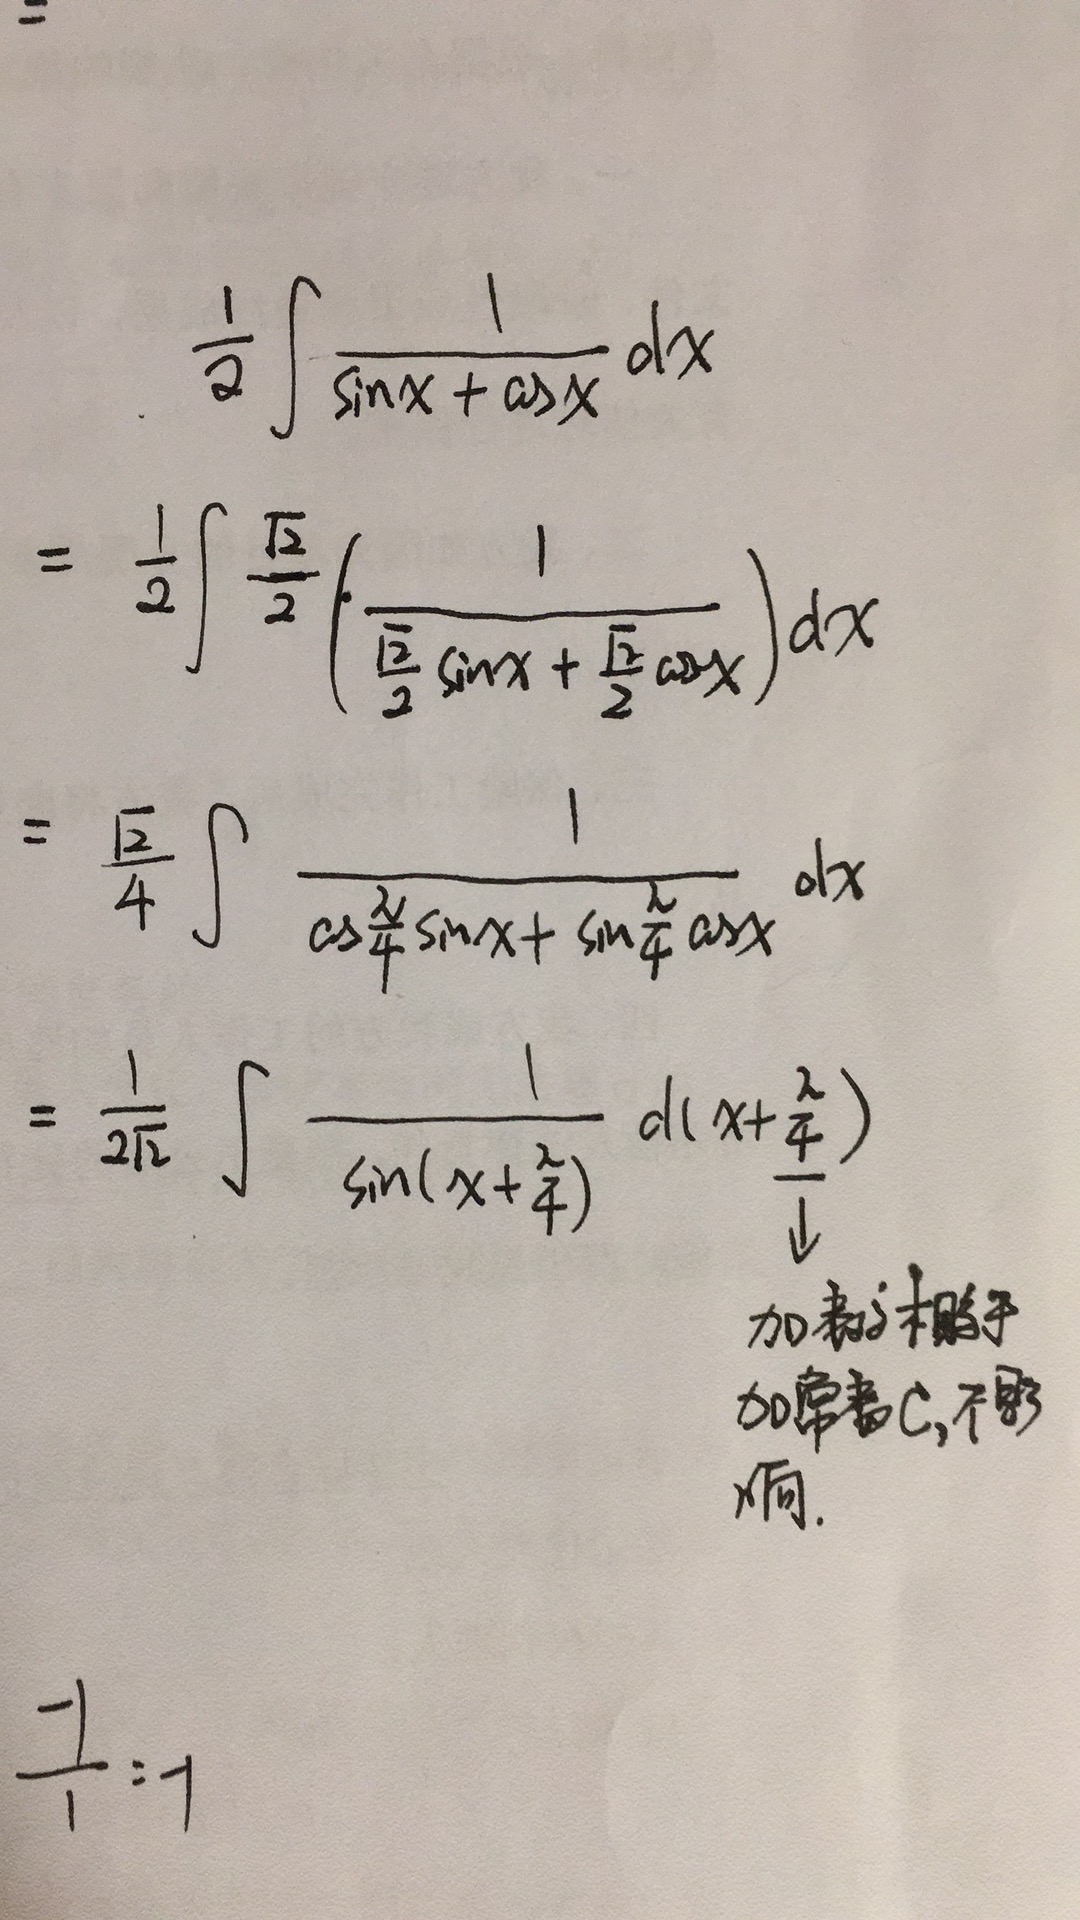 =
1/2 ∫ 1/(sinx + cosx) dx
= 1/2 ∫ √2/2 (· 1/(√2/2 sinx + √2/2 cosx)) dx
= √2/4 ∫ 1/(cos π/4 sinx + sin π/4 cosx) dx
= 1/(2√2) ∫ 1/sin(x + π/4) d(x + π/4)
↓
加 相当于
加常数C,不影
响.
-1/1 = -1